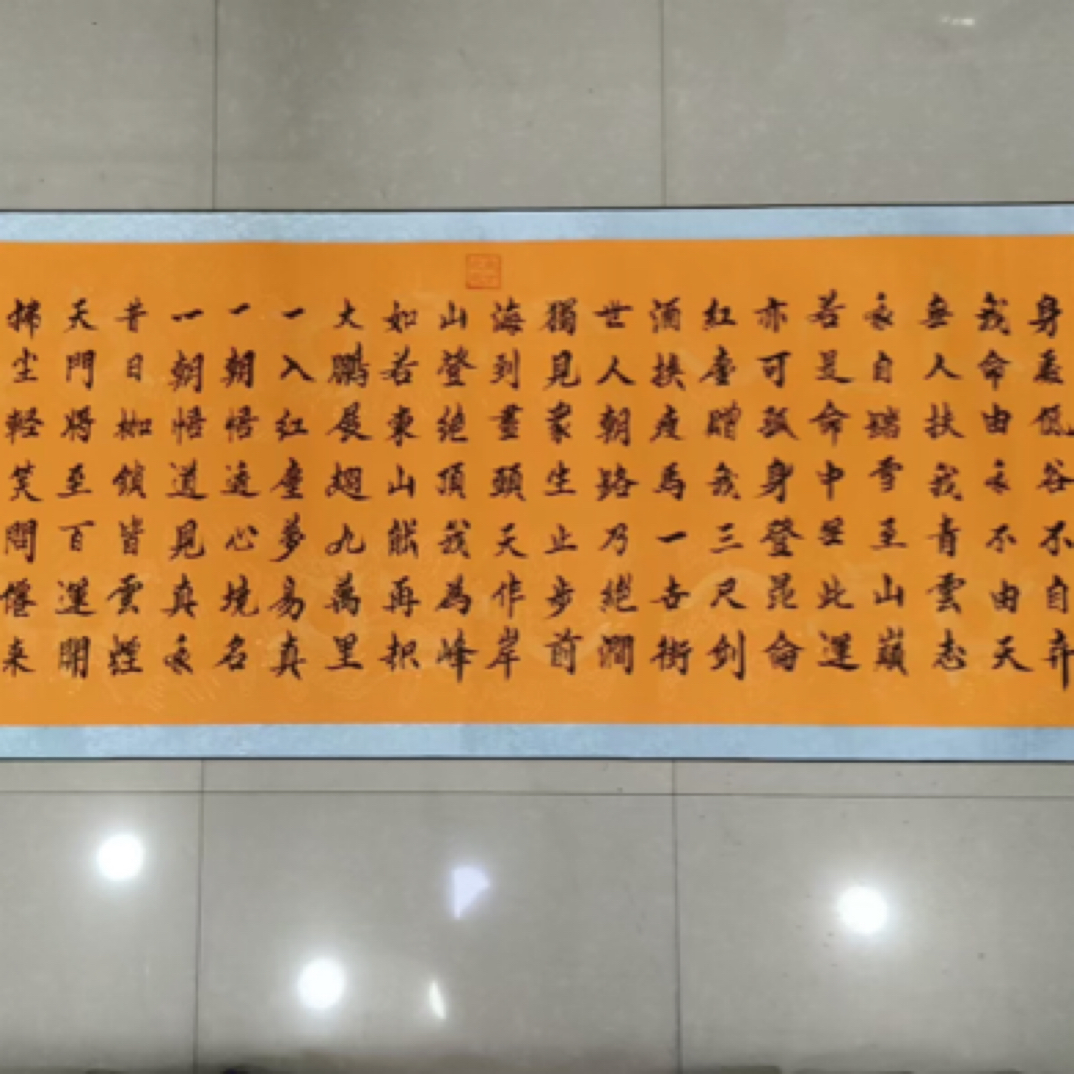 身處低谷不自弃
我命由永不由天
無人扶我青雲志
永自踏雪至山巔
若是命中無此運
亦可孤身登昆侖
紅塵贈我三尺劍
酒挾瘦馬一古街
世人朝路乃絕澗
獨見衆生止步前
海到盡頭天作岸
山登絶頂我為峰
如若東山能再枳
大鵬展翅九萬里
一入紅塵夢易真
一朝悟透心境名
一朝悟道見真永
昔日枷鎖皆雲煙
天門將至百運開
拂尘輕笑問僊来